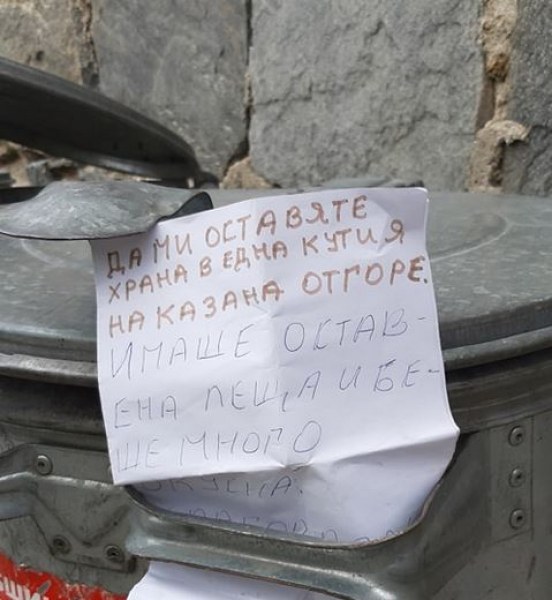 ДА МИ ОСТАВЯТЕ
ХРАНА В ЕДНА КУТИЯ
НА КАЗАНА ОТГОРЕ.
ИМАШЕ ОСТАВ-
ЕНА ЛЕЩА И БЕ-
ШЕ МНОГО
ВКУСНА.